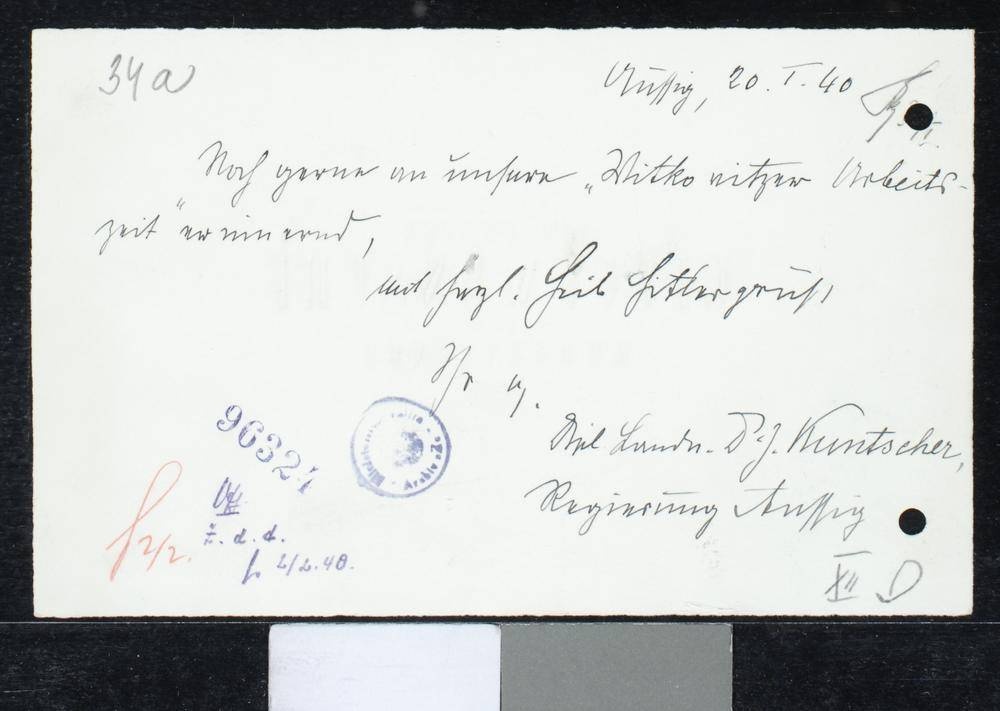 34a
Aussig, 20. I. 40
Noch gerne an unsere „Witkowitzer Arbeits-
zeit" erinnernd,
mit herzl. Heil Hitlergruß!
Ihr erg.
Dipl. Landw. Dr. J. Kuntscher,
Regierung Aussig
96324
Archiv
ž. d. d.
2/2. 40.
2/2.
XII D